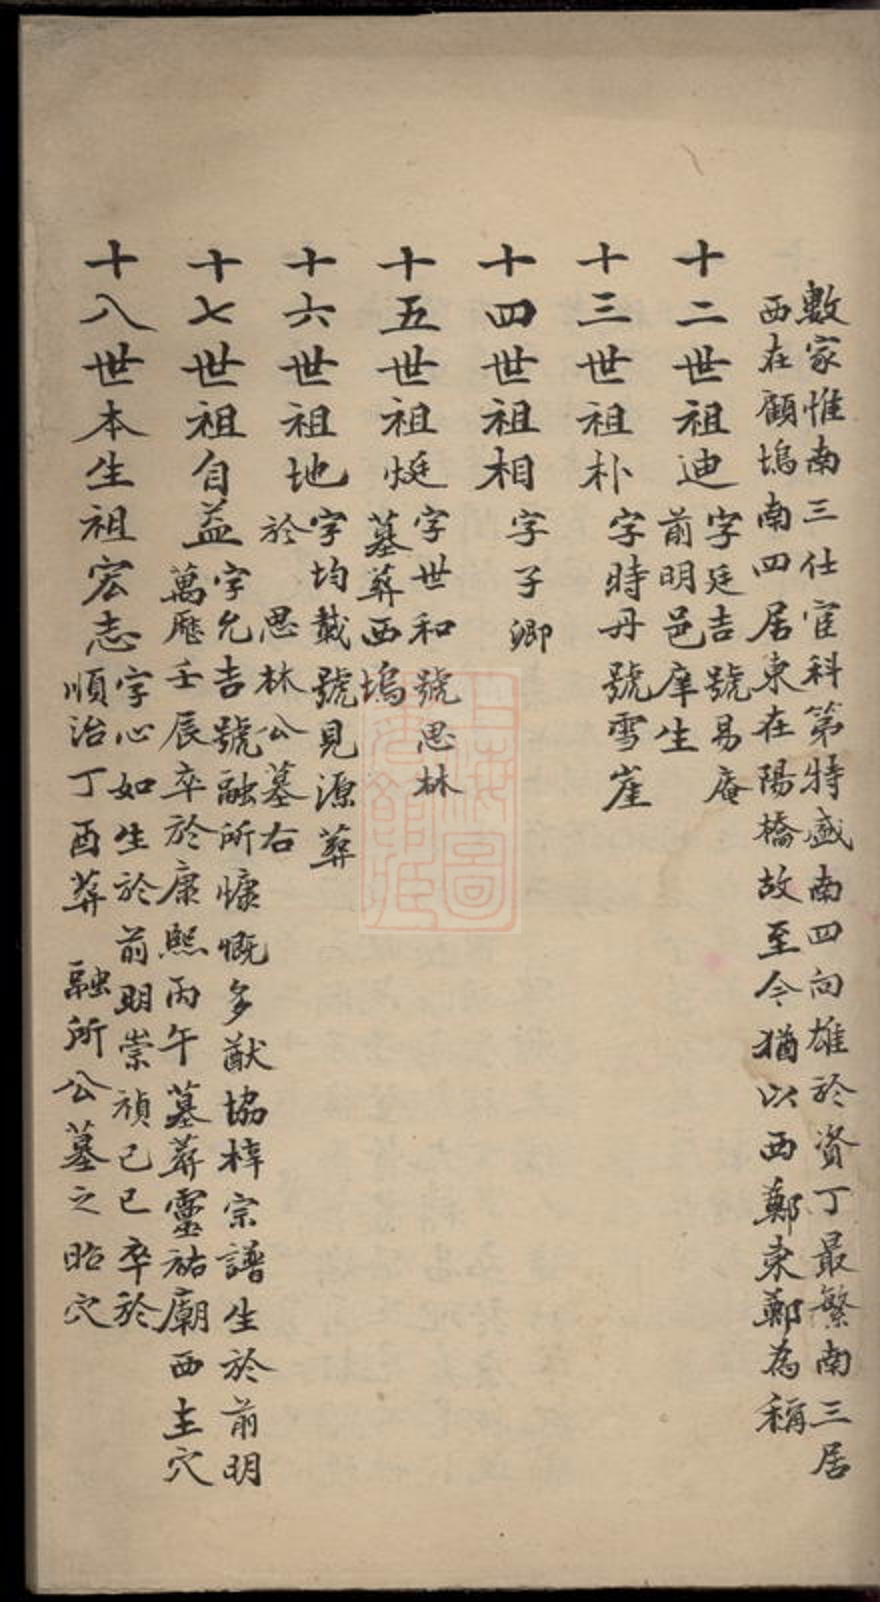 數家惟南三仕宦科第特盛南四向雄於資丁最繁南三居
西在顧塢南四居東在陽橋故至今猶以西鄭東鄭為稱
十二世祖迪
字廷吉號易庵
前明邑庠生
十三世祖朴
字時丹號雪崖
十四世祖相
字子卿
十五世祖烶
字世和號思林
墓葬西塢
十六世祖地
字均載號見源葬
於 思林公墓右
十七世祖自益
字允吉號融所慷慨多猷協梓宗譜生於前明
萬歷壬辰卒於康熙丙午墓葬靈祐廟西主穴
十八世本生祖宏志
字心如生於前明崇禎己巳卒於
順治丁酉葬 融所公墓之昭穴
上海圖書館藏